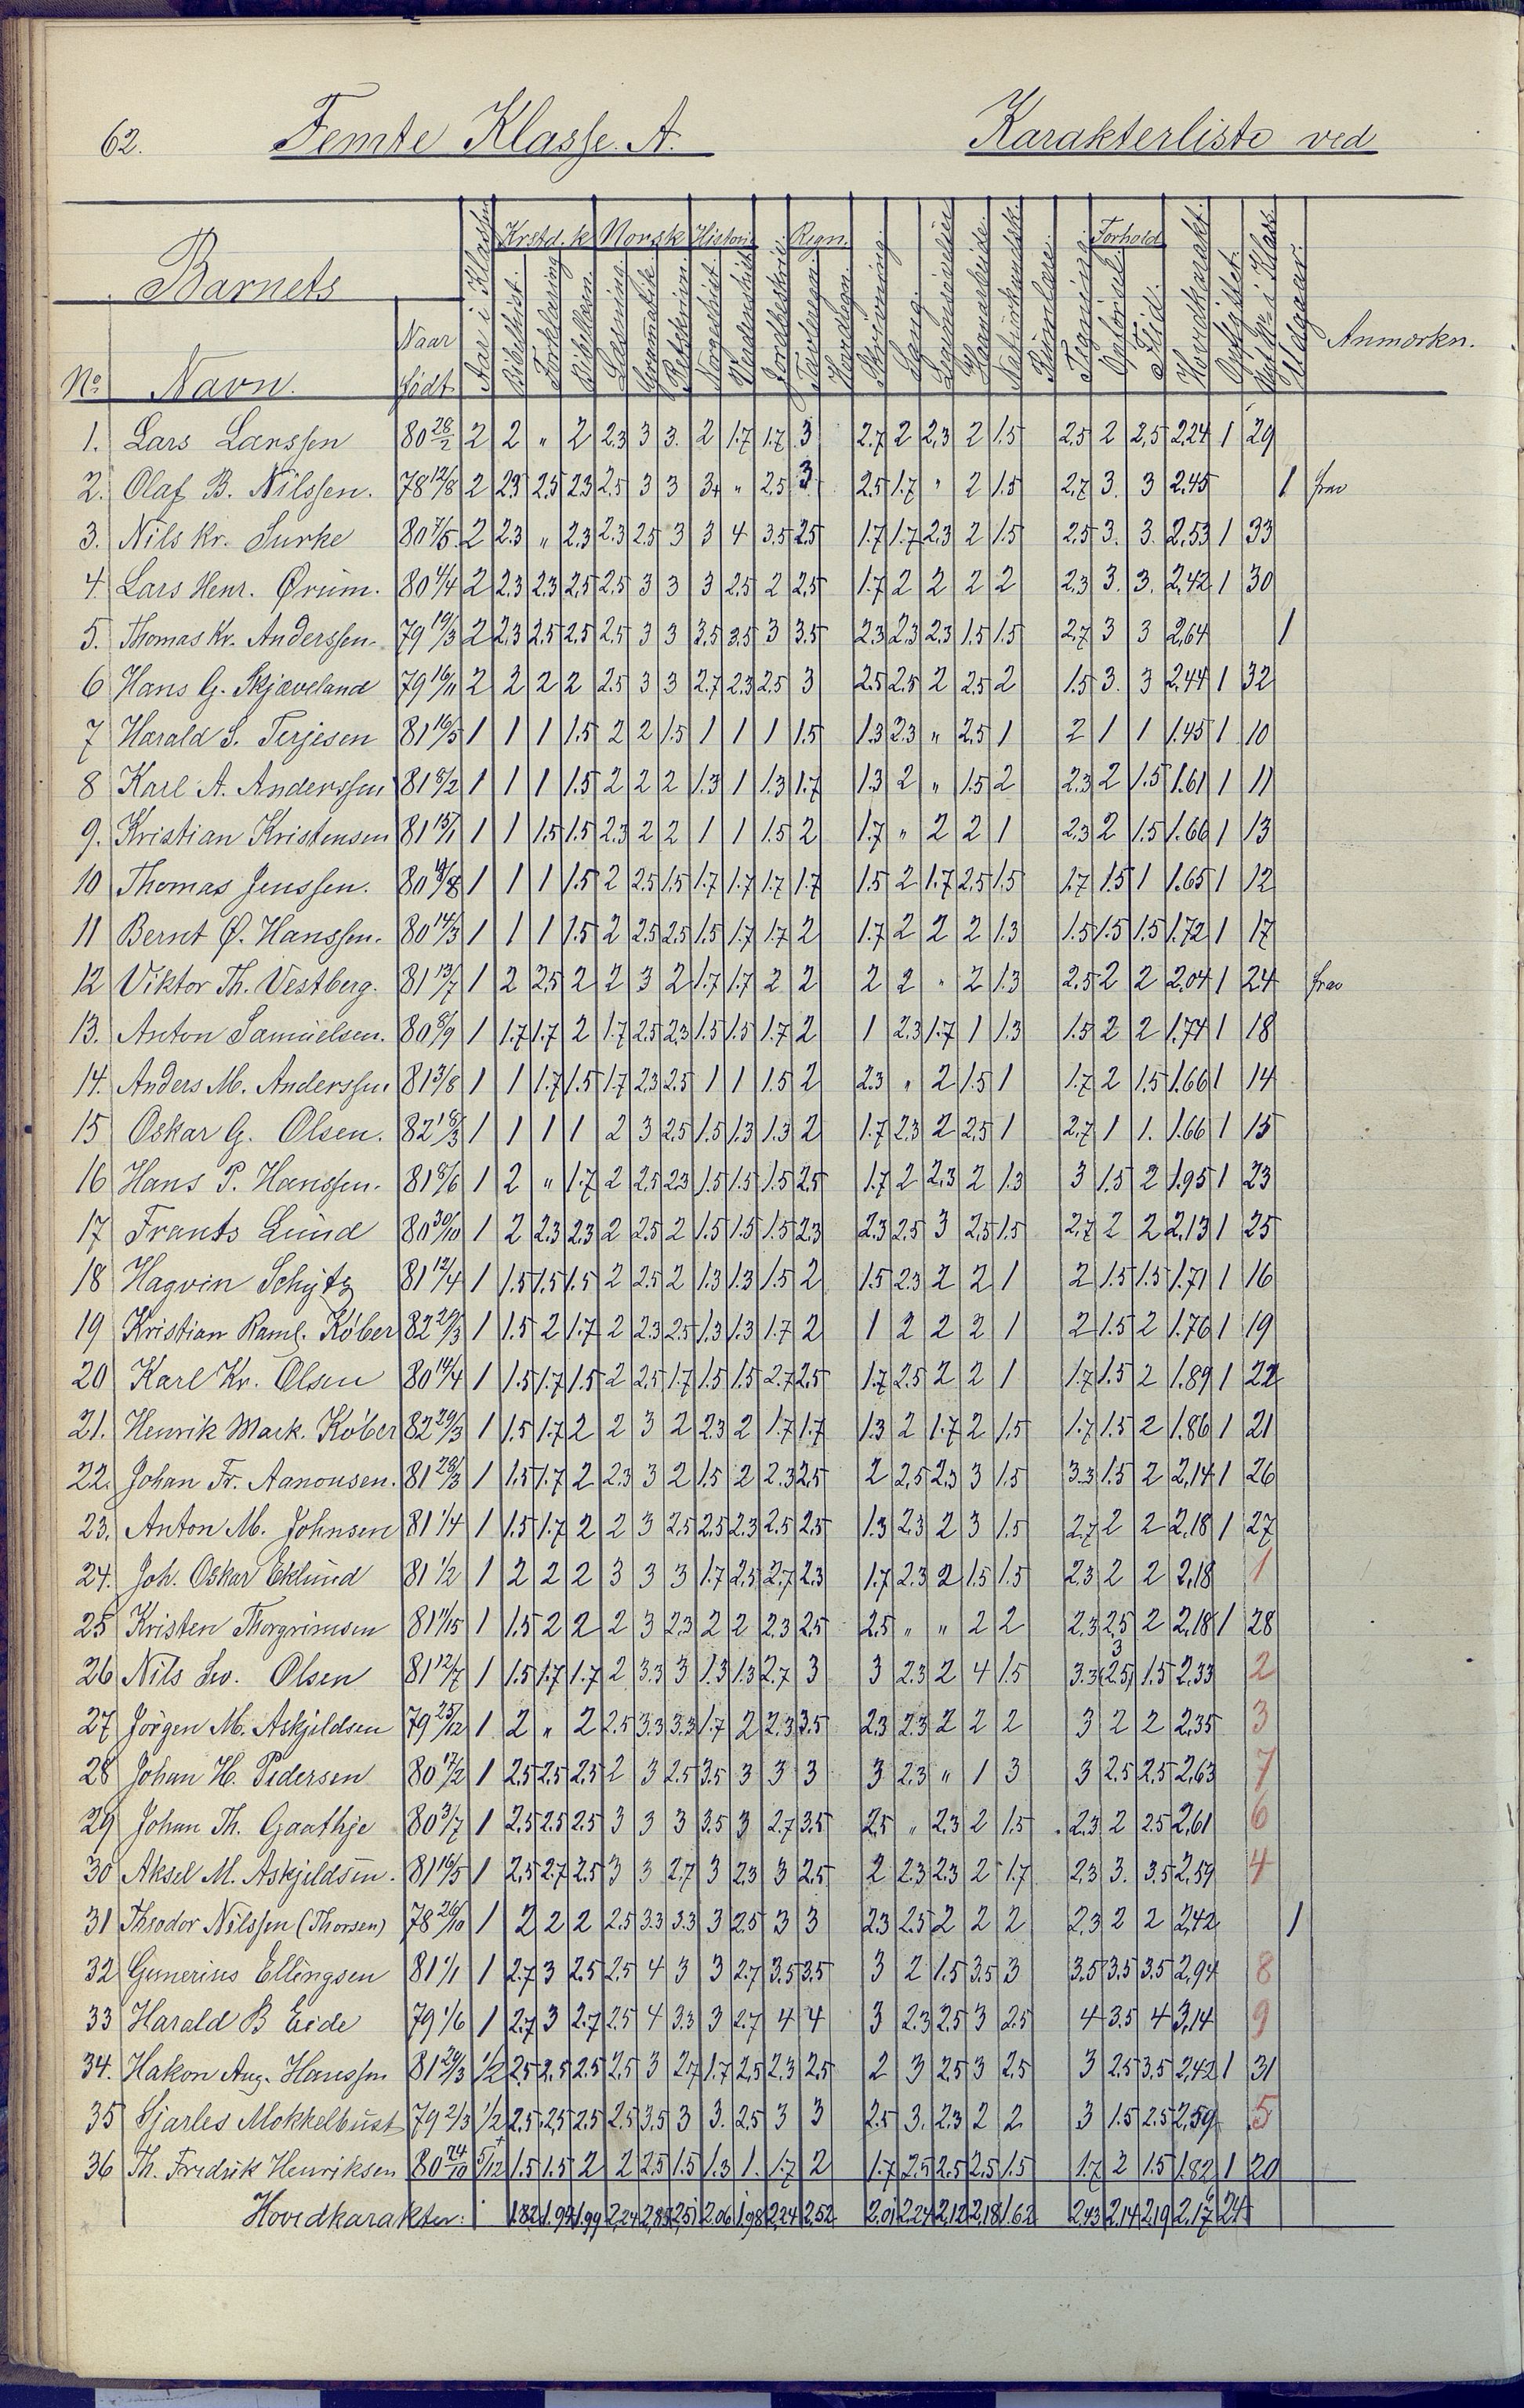 62. Femte Klasse. A. Karakterliste ved
Barnets
No. Navn. Naar født. Aar i Klassen Krstd.k. Bibelhist. Forklaring Bibellæsn. Norsk Læsning Grammatik Retskrivn. Historie Norgeshist Verdenshist Jordbeskriv. Regn. Tavleregn Hovdregn. Skrivning. Sang. Legemsøvelser Haandarbeide. Naturkundsk. Rumlære. Tegning Forhold Opførsel Flid. Hovedkarakt. Opflyttet Nyt No. i Klas. Udgaar. Anmærkn.
1. Lars Larssen 80 28/2 2 2 " 2 2.3 3 3. 2 1.7 1.7 3 2.7 2 2,3 2 1.5 2.5 2 2,5 2,24 1 29
2. Olaf B. Nilssen. 78 12/8 2 2.3 2.5 2.3 2.5 3 3 3+ " 2.5 3 2.5 1.7 " 2 1.5 2.7 3. 3 2.45 1 frav
3. Nils Kr. Surke 80 7/5 2 2.3 " 2.3 2.3 2.5 3 3 4 3.5 2.5 1.7 1.7 2.3 2 1.5 2.5 3. 3. 2,53 1 33
4. Lars Henr. Ørum. 80 4/4 2 2.3 2.3 2.5 2.5 3 3 3 2.5 2 2.5 1.7 2 2 2 2 2.3 3. 3. 2,42 1 30
5. Thomas Kr. Anderssen. 79 19/3 2 2.3 2.5 2.5 2.5 3 3 3.5 3.5 3 3.5 2.3 2.3 2.3 1.5 1.5 2.7 3 3 2,64 1
6 Hans G. Skjæveland 79 16/11 2 2 2 2 2.5 3 3 2.7 2.3 2.5 3 2.5 2.5 2 2.5 2 1.5 3. 3 2,44 1 32
7 Harald S. Terjesen 81 16/5 1 1 1 1.5 2 2 1.5 1 1 1 1.5 1.3 2.3 " 2.5 1 2 1 1 1.45 1 10
8 Karl A. Anderssen 81 8/2 1 1 1 1.5 2 2 2 1.3 1 1.3 1.7 1.3 2 " 1.5 2 2.3 2 1.5 1.61 1 11
9. Kristian Kristensen 81 15/1 1 1 1.5 1.5 2.3 2 2 1 1 1.5 2 1.7 " 2 2 1 2.3 2 1.5 1.66 1 13
10 Thomas Jenssen. 80 19/8 1 1 1 1.5 2 2.5 1.5 1.7 1.7 1.7 1.7 1.5 2 1.7 2.5 1.5 1.7 1.5 1 1.65 1 12
11 Bernt Ø. Hanssen. 80 14/3 1 1 1 1.5 2 2.5 2.5 1.5 1.7 1.7 2 1.7 2 2 2 1.3 1.5 1.5 1.5 1.72 1 17
12 Viktor Th. Vestberg. 81 13/7 1 2 2.5 2 2 3 2 1.7 1.7 2 2 2 2 " 2 1.3 2.5 2 2 2,04 1 24 frav
13. Anton Samuelsen. 80 8/9 1 1.7 1.7 2 1.7 2.5 2.3 1.5 1.5 1.7 2 1 2.3 1.7 1 1.3 1.5 2 2 1.74 1 18
14. Anders M. Anderssen 81 3/8 1 1 1.7 1.5 1.7 2.3 2.5 1 1 1.5 2 2.3 " 2 1.5 1 1.7 2 1.5 1.66 1 14
15 Oskar G. Olsen. 82 18/3 1 1 1 1 2 3 2.5 1.5 1.3 1.3 2 1.7 2.3 2 2.5 1 2.7 1 1. 1.66 1 15
16 Hans P. Hanssen. 81 8/6 1 2 " 1.7 2 2.5 2.3 1.5 1.5 1.5 2.5 1.7 2 2,3 2 1.3 3 1.5 2 1.95 1 23
17 Frants Lund 80 30/10 1 2 2.3 2.3 2 2.5 2 1.5 1.5 1.5 2.3 2.3 2.5 3 2.5 1.5 2.7 2 2 2,13 1 25
18 Hagvin Schytz 81 12/4 1 1.5 1.5 1.5 2 2.5 2 1.3 1.3 1.5 2 1.5 2.3 2 2 1 2 1.5 1.5 1.71 1 16
19 Kristian Raml. Köber 82 29/3 1 1.5 2 1.7 2 2.3 2.5 1.3 1.3 1.7 2 1 2 2 2 1 2 1.5 2 1.76 1 19
20 Karl Kr. Olsen 80 14/4 1 1.5 1.7 1.5 2 2.5 1.7 1.5 1.5 2.7 2.5 1.7 2.5 2 2 1 1.7 1.5 2 1.89 1 22
21. Henrik Mark. Köber 82 29/3 1 1.5 1.7 2 2 3 2 2.3 2 1.7 1.7 1.3 2 1.7 2 1.5 1.7 1.5 2 1.86 1 21
22. Johan Fr. Aanonsen. 81 28/3 1 1.5 1.7 2 2.3 3 2 1.5 2 2.3 2.5 2 2.5 2.3 3 1.5 3.3 1.5 2 2,14 1 26
23. Anton M. Johnsen 81 1/4 1 1.5 1.7 2 2 3 2.5 2.5 2.3 2.5 2.5 1.3 2.3 2 3 1.5 2.7 2 2 2,18 1 27
24. Joh. Oskar Eklund 81 1/2 1 2 2 2 3 3 3 1.7 2.5 2.7 2.3 1.7 2.3 2 1.5 1.5 2.3 2 2 2,18 1
25 Kristen Thorgrimsen 81 11/5 1 1.5 2 2 2 3 2.3 2 2 2.3 2.5 2.5 " " 2 2 2.3 2.5 2 2,18 1 28
26 Nils Lo. Olsen 81 12/7 1 1.5 1.7 1.7 2 3.3 3 1.3 1.3 2.7 3 3 2.3 2 4 1.5 3.3 3 (2.5) 1.5 2,33 2
27 Jörgen M. Askjeldsen 79 25/12 1 2 " 2 2.5 3.3 3.3 1.7 2 2.3 3.5 2.3 2.3 2 2 2 3 2 2 2,35 3
28 Johan H. Pedersen 80 17/2 1 2.5 2.5 2.5 2 3 2.5 3.5 3 3 3 3 2.3 " 1 3 3 2.5 2.5 2,63 7
29 Johan Th. Gaathje 80 3/7 1 2.5 2.5 2.5 3 3 3 3.5 3 2.7 3.5 2.5 " 2.3 2 1.5 2.3 2 2.5 2,61 6
30 Aksel M. Askjeldsen. 81 16/5 1 2.5 2.7 2.5 3 3 2.7 3 2.3 3 2.5 2 2.3 2.3 2 1.7 2.3 3. 3.5 2,59 4
31 Theodor Nilssen (Thorsen) 78 26/10 1 2 2 2 2.5 3.3 3.3 3 2.5 3 3 2.3 2.5 2 2 2 2.3 2 2 2,42 1
32 Gunerius Ellingsen 81 1/1 1 2.7 3 2.5 2.5 4 3 3 2.7 3.5 3.5 3 2 1.5 3.5 3 3.5 3.5 3.5 2,94 8
33 Harald B Eide 79 1/6 1 2.7 3 2.7 2.5 4 3.3 3 2.7 4 4 3 2.3 2.5 3 2.5 4 3.5 4 3,14 9
34. Hakon Aug. Hanssen 81 29/3 1/2 2.5 2.5 2.5 2.5 3 2.7 1.7 2.5 2.3 2.5 2 3 2.5 3 2.5 3 2.5 3.5 2,42 1 31
35 Sjarles Mokkelbust 79 2/3 1/2 2.5 2.5 2.5 2.5 3.5 3 3. 2.5 3 3 2.5 3. 2.3 2 2 3 1.5 2.5 2,59 5
36 Th. Fredrik Henriksen 80 24/10 5/12 1.5 1.5 2 2 2.5 1.5 1.3 1. 1.7 2 1.7 2.5 2.5 2.5 1.5 1.7 2 1.5 1.82 1 20
Hovedkarakter: 1.82 1.94 1.99 2,24 2,85 2,51 2.06 1.98 2.24 2.52 2.01 2.24 2.12 2.18 1.62 2.43 2.14 2.19 2,17 24